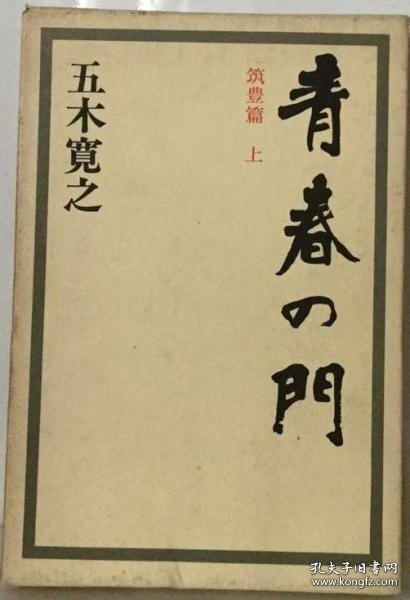 青春の門
筑豊篇 上
五木寛之
孔夫子旧书网